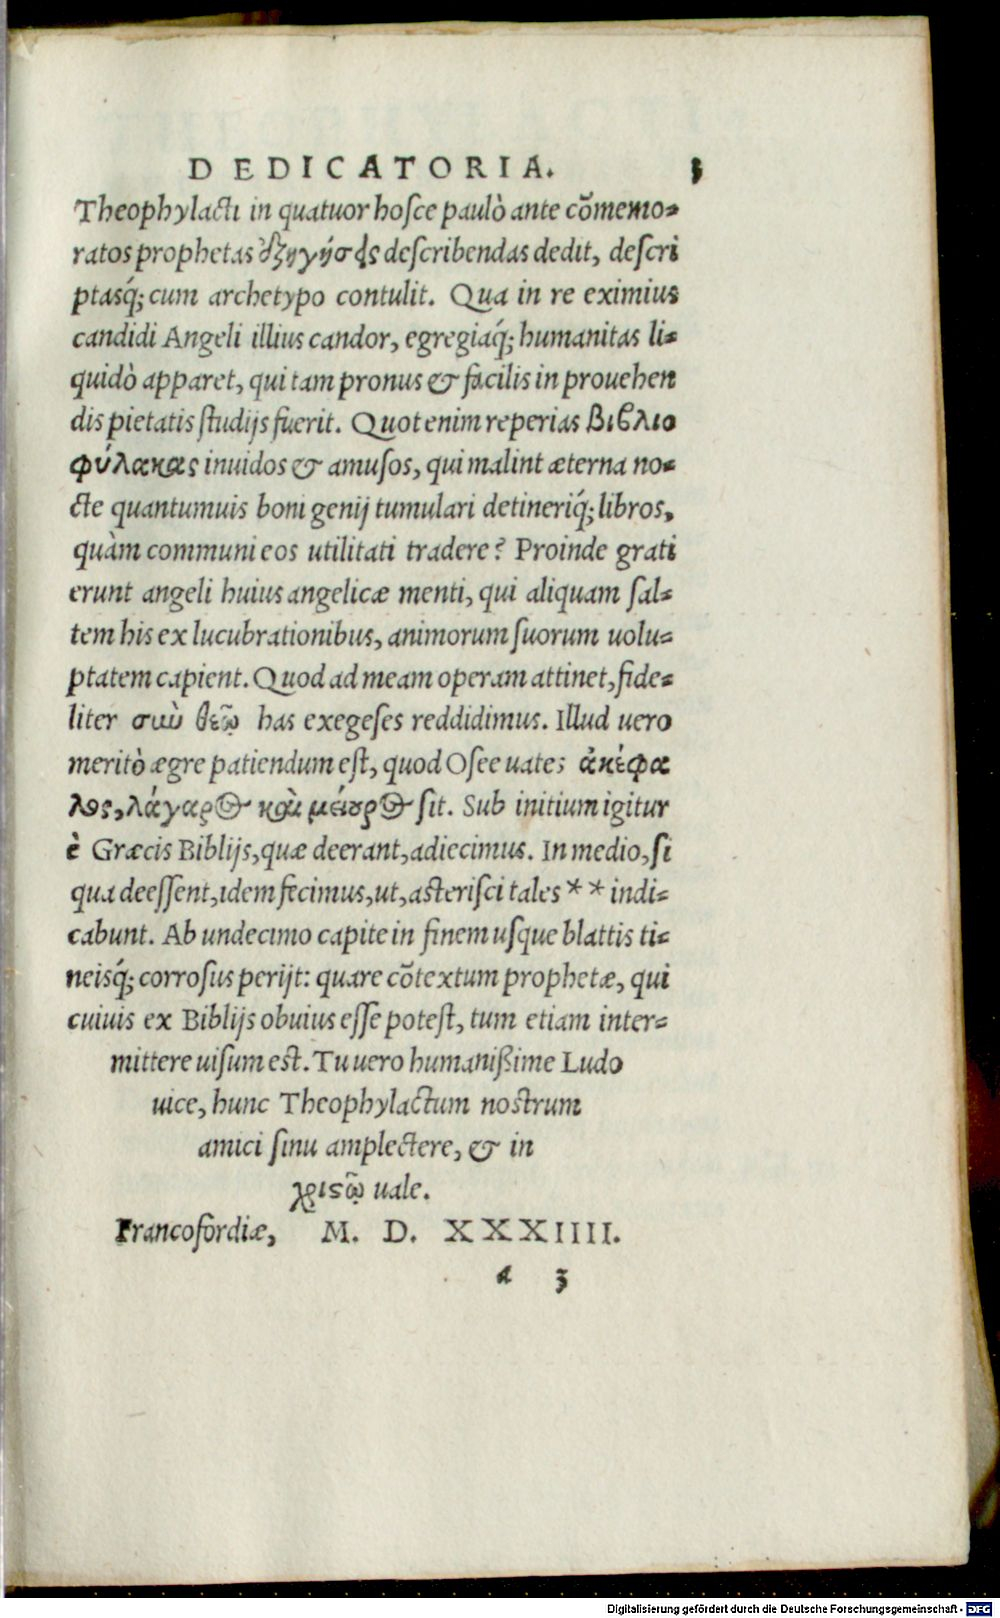 DEDICATORIA. 3
Theophylacti in quatuor hosce paulò ante cõmemo-
ratos prophetas ἐξηγήσεις describendas dedit, descri
ptasq́; cum archetypo contulit. Qua in re eximius
candidi Angeli illius candor, egregiaq́; humanitas li-
quidò apparet, qui tam pronus & facilis in prouehen
dis pietatis studijs fuerit. Quot enim reperias βιβλιο
φύλακας inuidos & amusos, qui malint æterna no-
cte quantumuis boni genij tumulari detineriq́; libros,
quàm communi eos utilitati tradere? Proinde grati
erunt angeli huius angelicæ menti, qui aliquam sal-
tem his ex lucubrationibus, animorum suorum uolu-
ptatem capient. Quod ad meam operam attinet, fide-
liter σὺν θεῷ has exegeses reddidimus. Illud uero
meritò ægre patiendum est, quod Osee uates ἀκέφα
λος, λάγαρος καὶ μείουρος sit. Sub initium igitur
è Græcis Biblijs, quæ deerant, adiecimus. In medio, si
qua deessent, idem fecimus, ut, asterisci tales ** indi-
cabunt. Ab undecimo capite in finem usque blattis ti-
neisq́; corrosus perijt: quare cõtextum prophetæ, qui
cuiuis ex Biblijs obuius esse potest, tum etiam inter-
mittere uisum est. Tu uero humanißime Ludo
uice, hunc Theophylactum nostrum
amici sinu amplectere, & in
χριστῷ uale.
Francofordiæ, M. D. XXXIIII.
a 3
Digitalisierung gefördert durch die Deutsche Forschungsgemeinschaft - DFG